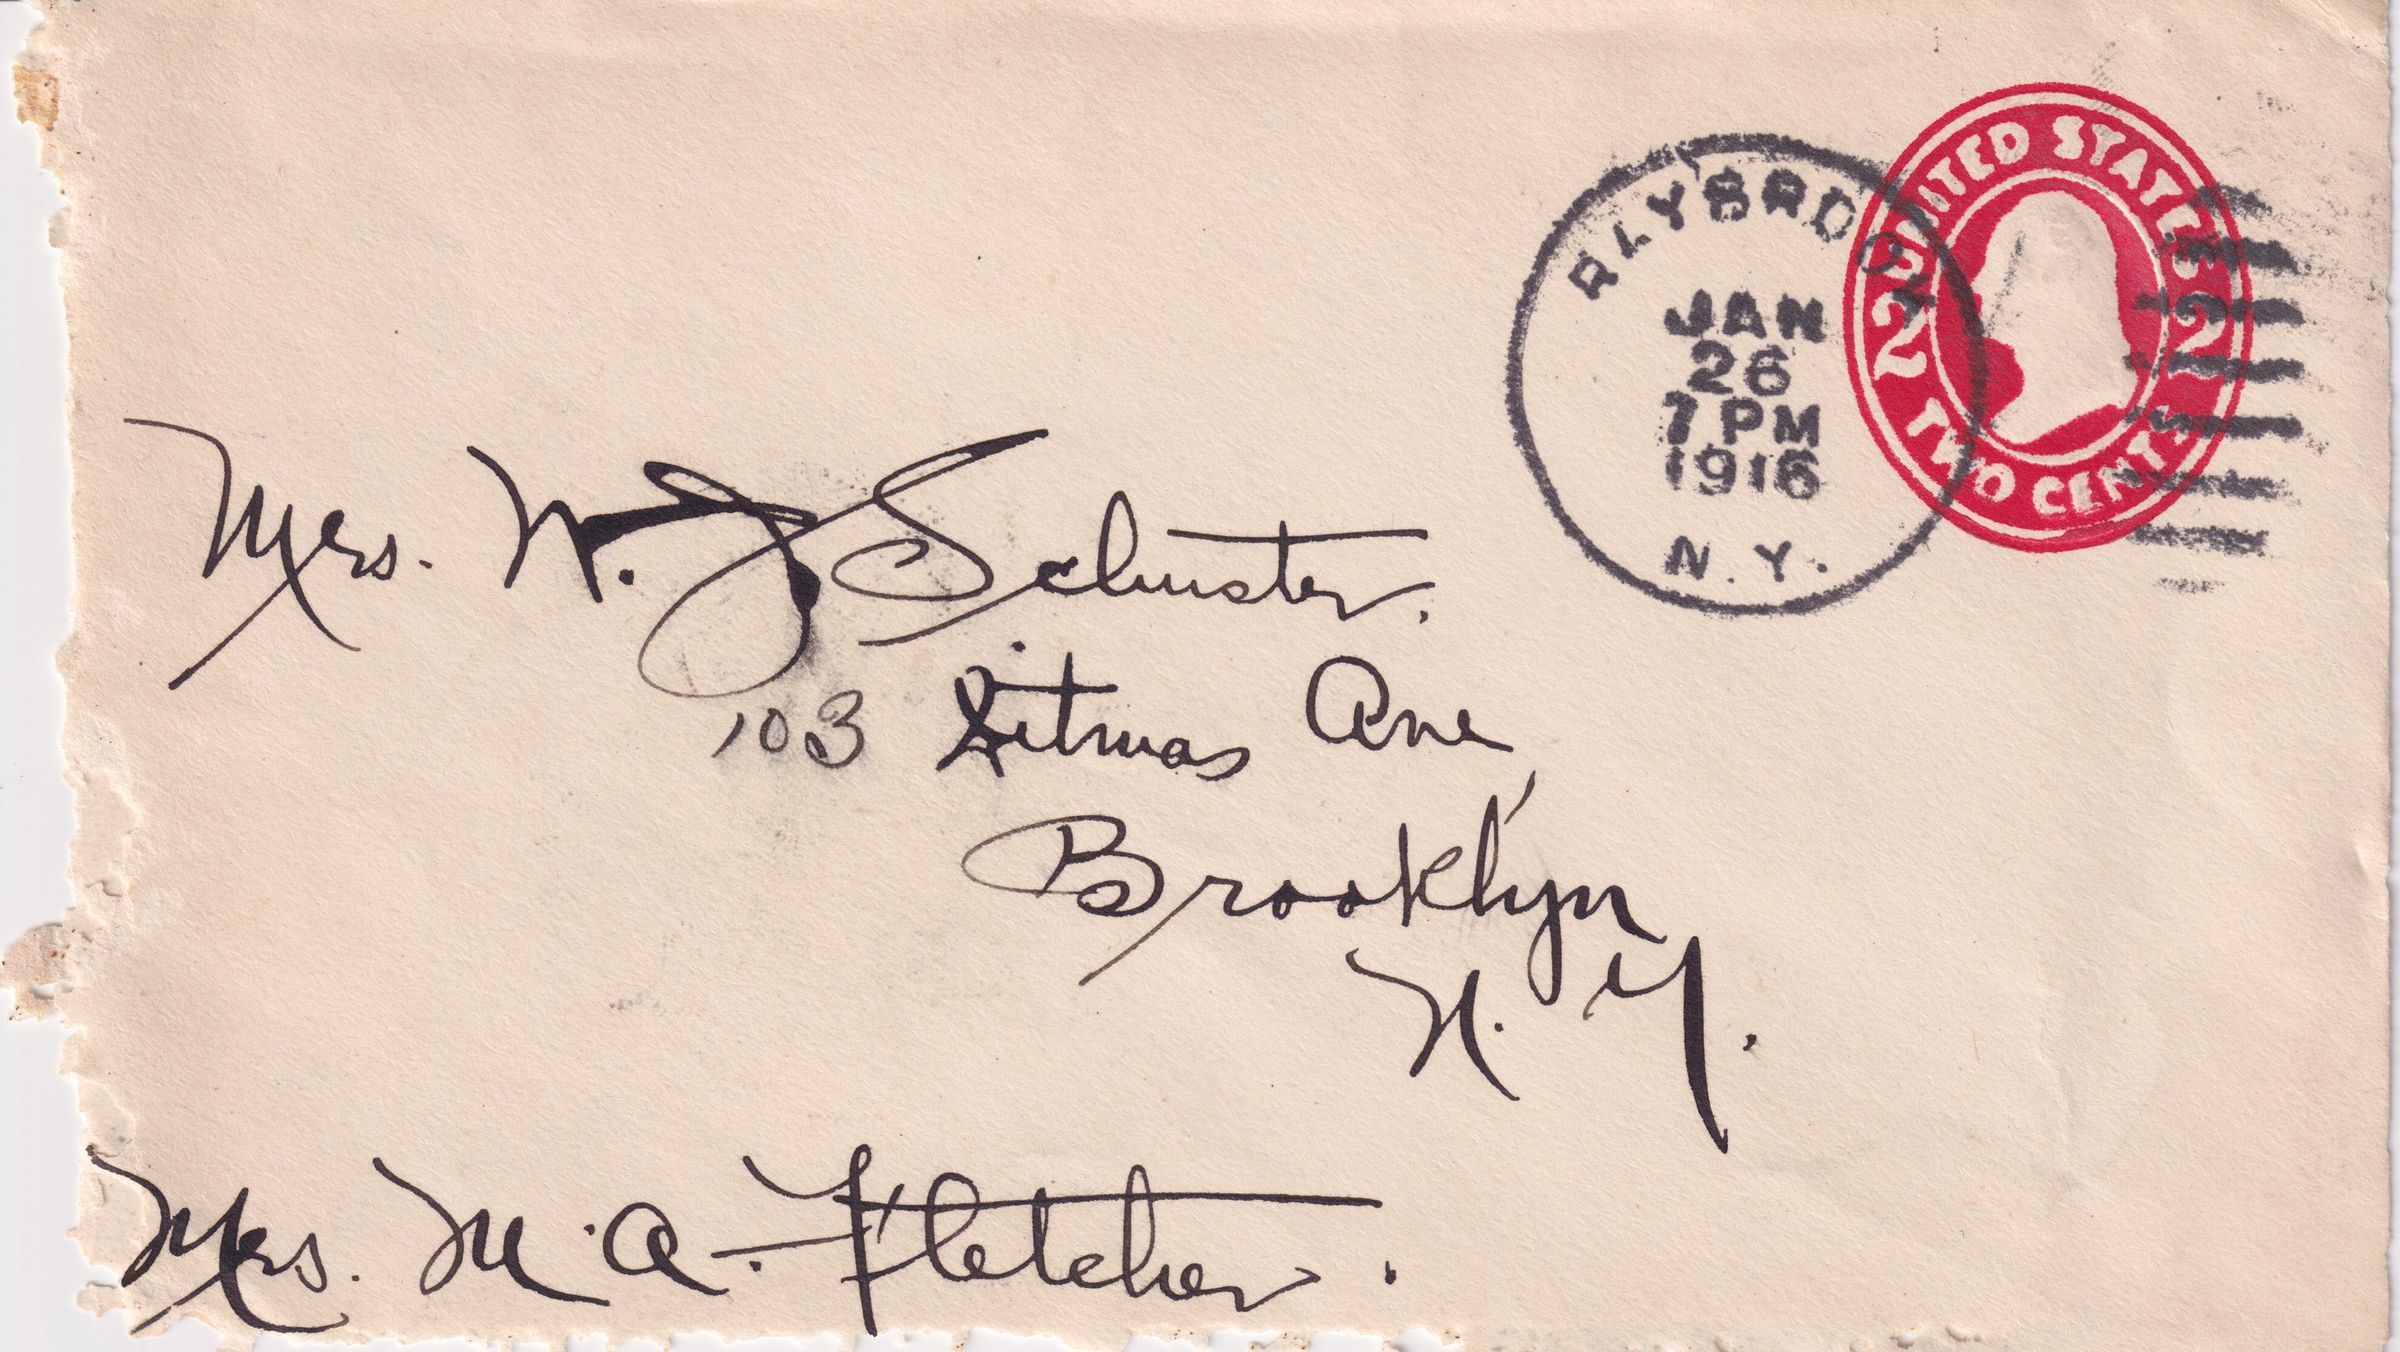 RAYBROOK
JAN
26
7 PM
1916
N. Y.
UNITED STATES
2 2
TWO CENTS
Mrs. W. J Schuster.
103 Ditmas Ave,
Brooklyn
N. Y.
Mrs. M. A. Fletcher.